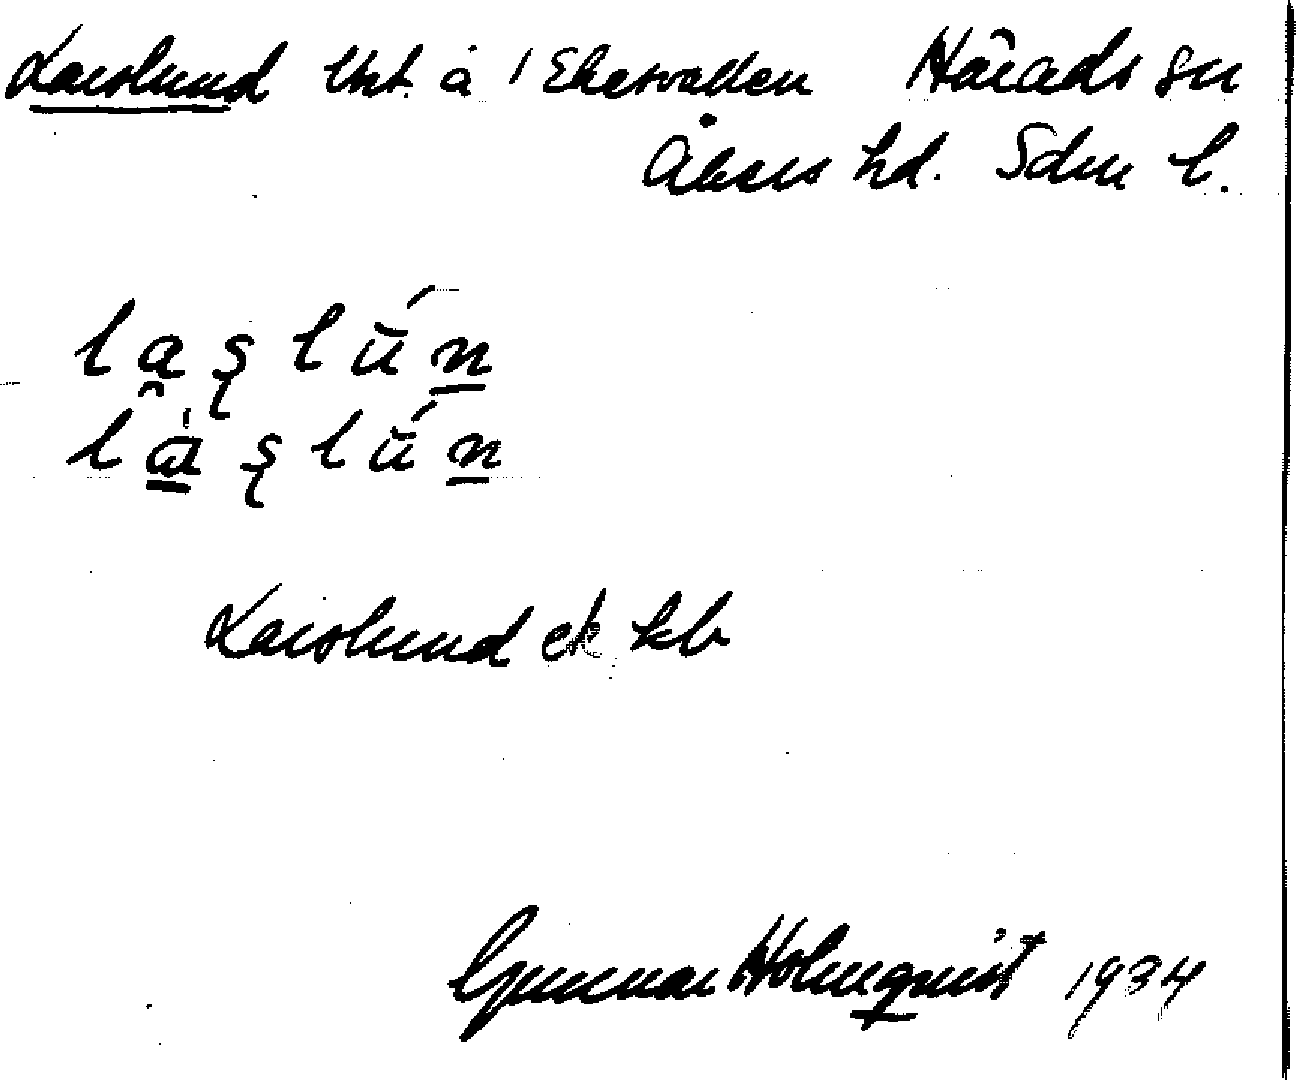 Larslund Uht. å 1 Ekesvallen Härads sn
Åkers hd. Sdm l.
laʂlún
là̱ʂlún
Larslund ek kb
Gunnar Holmquist 1934